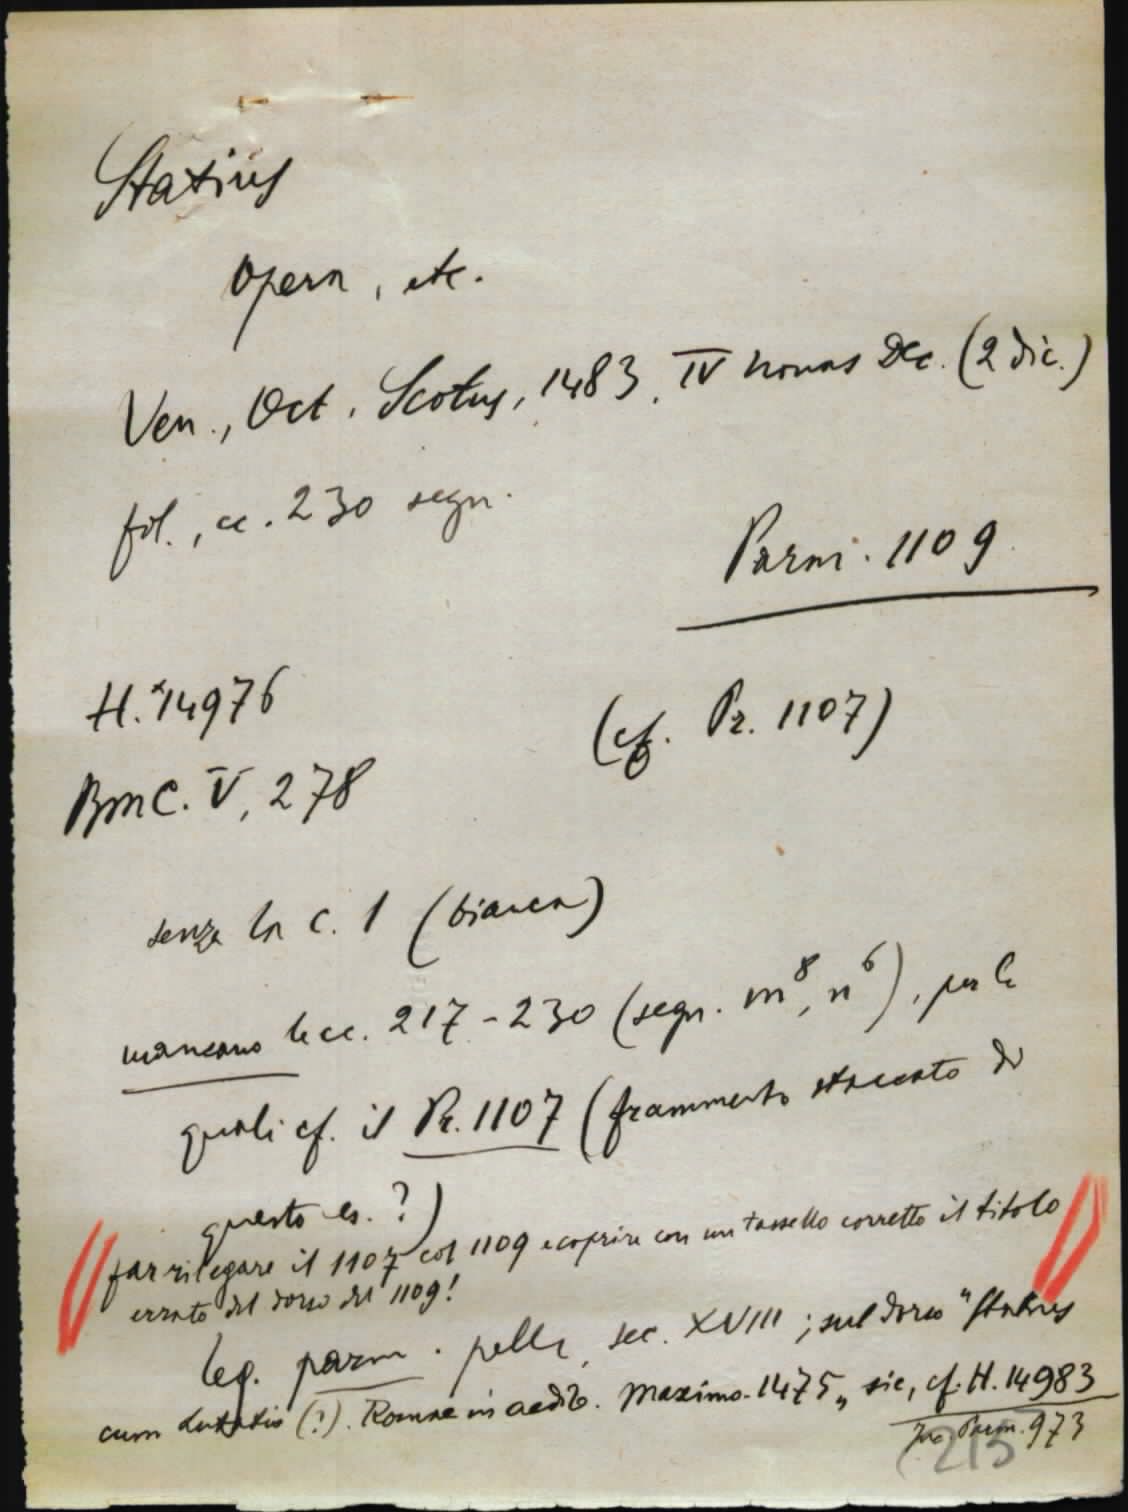 Statius
Opera, etc.
Ven., Oct. Scotus, 1483, IV nonas Dec. (2 dic.)
fol., cc. 230 segn.
Parm. 1109
H.*14976
(cf. Pr. 1107)
BMC. V, 278
senza la c. 1 (bianca)
mancano le cc. 217-230 (segn. m⁸, n⁶), per le
quali cf. il Pr. 1107 (frammento staccato di
questo es.?)
far rilegare il 1107 col 1109 e coprire con un tassello corretto il titolo
errato del dorso del 1109!
leg. parm. pelle, sec. XVIII; sul dorso "Statius
cum Lutatio (?). Romae in aedib. Maximo. 1475„ sic, cf. H. 14983
Inc. Parm. 973
(215